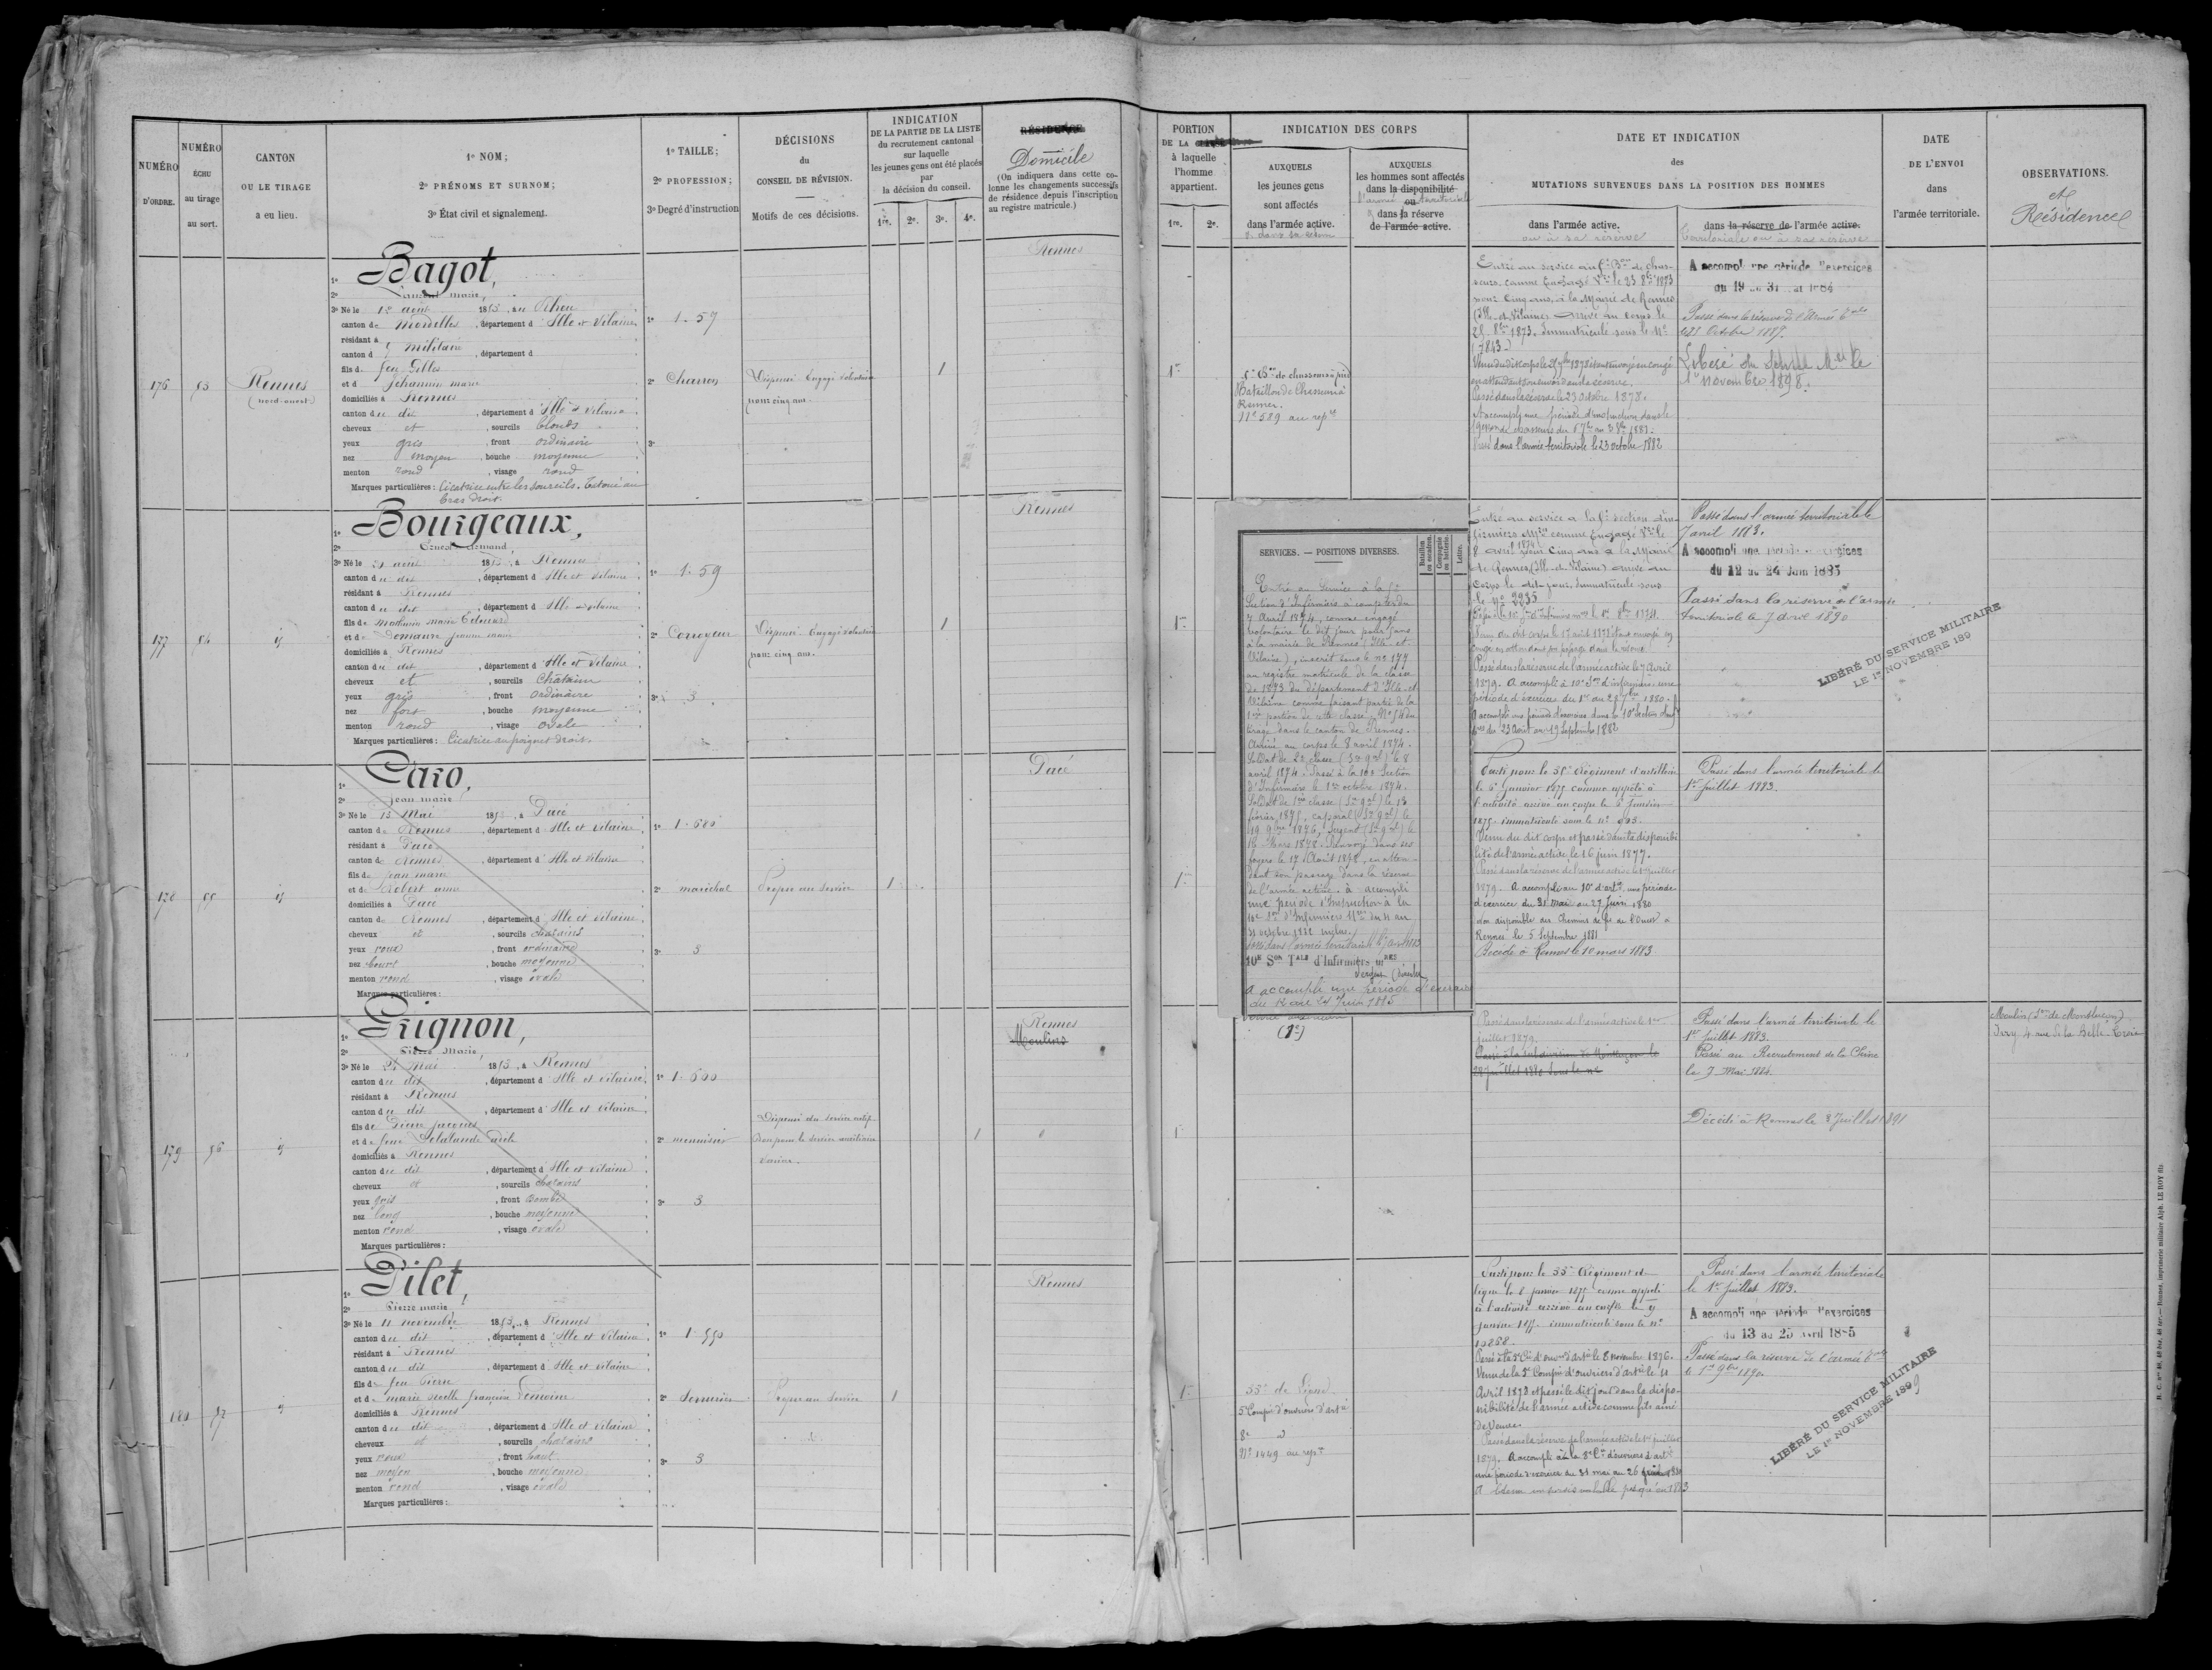 NUMÉRO
D'ORDRE.
NUMÉRO
ÉCHU
au tirage
au sort.
CANTON
OU LE TIRAGE
a eu lieu.
1º NOM;
2º PRÉNOMS ET SURNOM;
3º État civil et signalement.
1º TAILLE;
2º PROFESSION;
3º Degré d'instruction
DÉCISIONS
du
CONSEIL DE RÉVISION.
Motifs de ces décisions.
INDICATION
DE LA PARTIE DE LA LISTE
du recrutement cantonal
sur laquelle
les jeunes gens ont été placés
par
la décision du conseil.
1re. 2e. 3e. 4e.
RÉSIDENCE
Domicile
(On indiquera dans cette co-
lonne les changements successifs
de résidence depuis l'inscription
au registre matricule.)
PORTION
DE LA
à laquelle
l'homme
appartient.
1re. 2e.
INDICATION DES CORPS
AUXQUELS
les jeunes gens
sont affectés
dans l'armée active.
AUXQUELS
les hommes sont affectés
dans la disponibilité
l'armée ou territoriale
dans la réserve
de l'armée active.
DATE ET INDICATION
des
MUTATIONS SURVENUES DANS LA POSITION DES HOMMES
dans l'armée active.
ou à sa réserve
dans la réserve de l'armée active.
territoriale ou à sa réserve
DATE
DE L'ENVOI
dans
l'armée territoriale.
OBSERVATIONS.
et
Résidence
176
Rennes
(nord-ouest)
1º Bagot,
2º Laurent marie,
3º Né le 12 aout 1853, au Rheu
canton de Mordelles, département d'Ille et Vilaine
résidant à
canton d militaire, département d
fils de feu Gilles
et de Jehannin marie
domiciliés à Rennes
canton du dit, département d'Ille et Vilaine
cheveux et, sourcils blonds
yeux gris, front ordinaire
nez moyen, bouche moyenne
menton rond, visage rond
Marques particulières: Cicatrice entre les sourcils. Tatoué au
bras droit.
1º 1.57
2º Charron
3º
Dispensé Engagé Volontaire
pour cinq ans.
1
Rennes
1re
Bon de chasseurs à pied
Bataillon de Chasseurs à
Rennes.
Nº 589 au rep
Entré au service au Bon de chas-
seurs comme Engagé Vre le 23 8bre 1873
pour cinq ans, à la Mairie de Rennes
(Ille-et-Vilaine) arrivé au corps le
8bre 1873. Immatriculé sous le Nº
(7843)
en attendant son envoi dans la réserve.
Passé dans la réserve le 23 Octobre 1878.
Passé dans l'armée territoriale le 23 octobre 1882
A accompli une période d'exercices
du 19 au 31 1884
Passé dans la réserve de l'Armée tale
le 23 Octobre 1887.
Libéré du Service Mre le
1er novembre 1898.
177
1º Bourgeaux,
2º Ernest Armand,
3º Né le 21 aout 1853, à Rennes
canton du dit, département d'Ille et Vilaine
résidant à Rennes
canton du dit, département d'Ille et Vilaine
fils de Mathurin marie Edouard
et de Demaure
domiciliés à Rennes
canton du dit, département d'Ille et Vilaine
cheveux et, sourcils Chatains
yeux gris, front ordinaire
nez fort, bouche moyenne
menton rond, visage ovale
Marques particulières: Cicatrice au poignet droit.
1º 1.59
2º Corroyeur
3º 3
Dispensé Engagé Volontaire
pour cinq ans.
1
Rennes
1re
SERVICES. — POSITIONS DIVERSES.
Bataillon ou escadron.
Compagnie ou batterie.
Lettre.
Entré au Service à la
Section d'Infirmiers à compter du
7 Avril 1874, comme engagé
volontaire le dit jour pour 5 ans
à la mairie de Rennes (Ille-et-
Vilaine), inscrit sous le nº 177
au registre matricule de la classe
de 1873 du département d'Ille-et-
Vilaine comme faisant partie de la
1re portion de cette classe, Nº 54 du
tirage dans le canton de Rennes.
Arrivé au corps le 8 avril 1874.
Soldat de 2e classe le 8
avril 1874. Passé à la 10e Section
d'Infirmiers le 1er octobre 1874.
Soldat de 1ère classe le 13
février 1875, caporal le
19 9bre 1876, Sergent le
16 Mars 1878. Renvoyé dans ses
foyers le 17 Août 1878, en atten-
dant son passage dans la réserve
de l'armée active. à accompli
une période d'Instruction à la
10e Son d'Infirmiers Mres du 4 au
31 octobre 1881 inclus.
10E SON TALE d'Infirmiers MRES
A accompli une période d'exercice
du 12 au 24 Juin 1885
Entré au service à la section d'in-
firmiers Mres comme Engagé Vre le
8 avril 1874 pour Cinq ans à la Mairie
de Rennes (Ille-et-Vilaine) arrivé au
Corps le dit jour. Immatriculé sous
le Nº 2235
Passé dans la réserve de l'armée active le 7 Avril
1879. A accompli à 10e Son d'infirmiers une
période d'exercices du 1er au 28 7bre 1880.
A accompli une période d'exercices dans la 10e Section d'inf
du 23 Août au 19 Septembre 1882
Passé dans l'armée territoriale le
7 avril 1883.
A accompli une période d'exercices
du 12 au 24 Juin 1885
Passé dans la réserve de l'armée
territoriale le 7 Avril 1890
LIBÉRÉ DU SERVICE MILITAIRE
LE 1er NOVEMBRE 189
178
1º Caro,
2º Jean marie
3º Né le 15 Mai 1853, à Pacé
canton de Rennes, département d'Ille et Vilaine
résidant à Pacé
canton de Rennes, département d'Ille et Vilaine
fils de Jean marie
et de Robert anne
domiciliés à Pacé
canton de Rennes, département d'Ille et Vilaine
cheveux et, sourcils chatains
yeux roux, front ordinaire
nez court, bouche moyenne
menton rond, visage ovale
Marques particulières:
1º 1.680
2º maréchal
3º 3
Propre au service
1
Pacé
1re
Parti pour le 35e Régiment d'artillerie
le 6 Janvier 1875 comme appelé à
l'activité arrivé au corps le 6 Janvier
1875. immatriculé sous le nº
Venu du dit corps et passé dans la disponibi
lité de l'armée active le 16 juin 1877.
Passé dans la réserve de l'armée active le 1er juillet
1879. A accompli au 10e d'artie une période
d'exercice du 31 Mai au 27 Juin 1880
Non disponible aux Chemins de fer de l'Ouest à
Rennes le 5 Septembre 1881
Décédé à Rennes le 10 mars 1883
Passé dans l'armée territoriale le
1er Juillet 1883.
179
56
1º Grignon,
2º Pierre Marie,
3º Né le 24 Mai 1853, à Rennes
canton du dit, département d'Ille et Vilaine
résidant à Rennes
canton du dit, département d'Ille et Vilaine
fils de Pierre Jacques
et de feue Delalande
domiciliés à Rennes
canton du dit, département d'Ille et Vilaine
cheveux et, sourcils chatains
yeux gris, front bombé
nez long, bouche moyenne
menton rond, visage ovale
Marques particulières:
1º 1.600
2º menuisier
3º 3
Dispensé du service actif
Bon pour le service auxiliaire
1
Rennes
Moulins
1
Passé dans la réserve de l'armée active le 1er
juillet 1879.
Passé à la subdivision de Montluçon le
28 Juillet 1880 sous le nº
Passé dans l'armée territoriale le
1er Juillet 1883.
Passé au Recrutement de la Seine
le 7 Mai 1884.
Décédé à Rennes le 8 Juillet 1891
Moulin (Son de Montluçon)
Ivry 4 rue de la Belle-Croix
180
57
1º Pilet,
2º Pierre marie
3º Né le 11 novembre 1853, à Rennes
canton du dit, département d'Ille et Vilaine
résidant à Rennes
canton du dit, département d'Ille et Vilaine
fils de feu Pierre
et de marie noelle françoise Lemoine
domiciliés à Rennes
canton du dit, département d'Ille et Vilaine
cheveux et, sourcils chatains
yeux roux, front haut
nez moyen, bouche moyenne
menton rond, visage ovale
Marques particulières:
1º 1.550
2º Serrurier
3º 3
Propre au service
1
Rennes
1re
55e de Ligne
5e Compie d'ouvriers d'artie
8e d
Nº 1449 au repre
Parti pour le 55e Régiment de
ligne le 6 Janvier 1875 comme appelé
à l'activité arrivé au corps le
janvier 1875. immatriculé sous le nº
Passé à la d'ouvriers d'artie le 8 novembre 1876.
Venu de la 5e Compie d'ouvriers d'artie le 11
Avril 1878 et passé le dit jour dans la dispo-
nibilité de l'armée active comme fils ainé
de Veuve.
Passé dans la réserve de l'armée active le 1er juillet
1879. A accompli à la 8e Cie d'ouvriers d'artie
une période d'exercice du 31 mai au 26
Passé dans l'armée territoriale
le 1er Juillet 1883.
A accompli une période d'exercices
du 13 au 25 Avril 1885
Passé dans la réserve de l'armée tale
le 1er 9bre 1890.
LIBÉRÉ DU SERVICE MILITAIRE
LE 1er NOVEMBRE 1899
Rennes, imprimerie militaire Alph. LE ROY fils